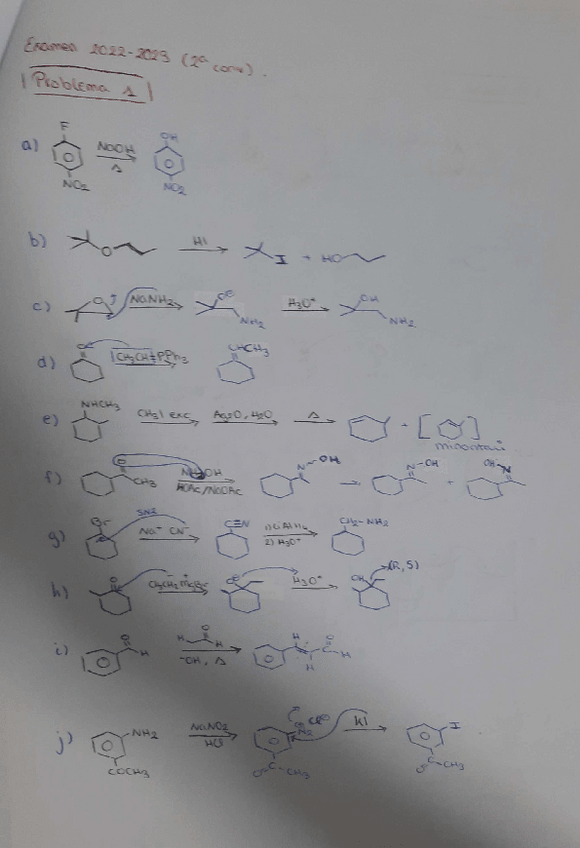 Examen 2022-2023 (2ª conv).
Problema 1
a) F NO2 NaOH Δ OH NO2
b) O HI I + HO
c) O NaNH2 O⊖ NH2 H3O+ OH NH2
d) O CH3CH=PPh3 CHCH3
e) NHCH3 CH3I exc Ag2O, H2O Δ + [ ]
minoritario
f) O CH3 NH2OH HOAc/NaOAc N-OH N-OH + OH-N
g) Br SN2 Na+ CN- C≡N 1) LiAlH4 2) H3O+ CH2-NH2
h) O CH3CH2 MgBr O⊖ H3O+ OH (R,S)
i) O H H O H -OH, Δ H H C O H
j) NH2 COCH3 NaNO2 HCl N2 Cl⊖ O C CH3 KI I C CH3